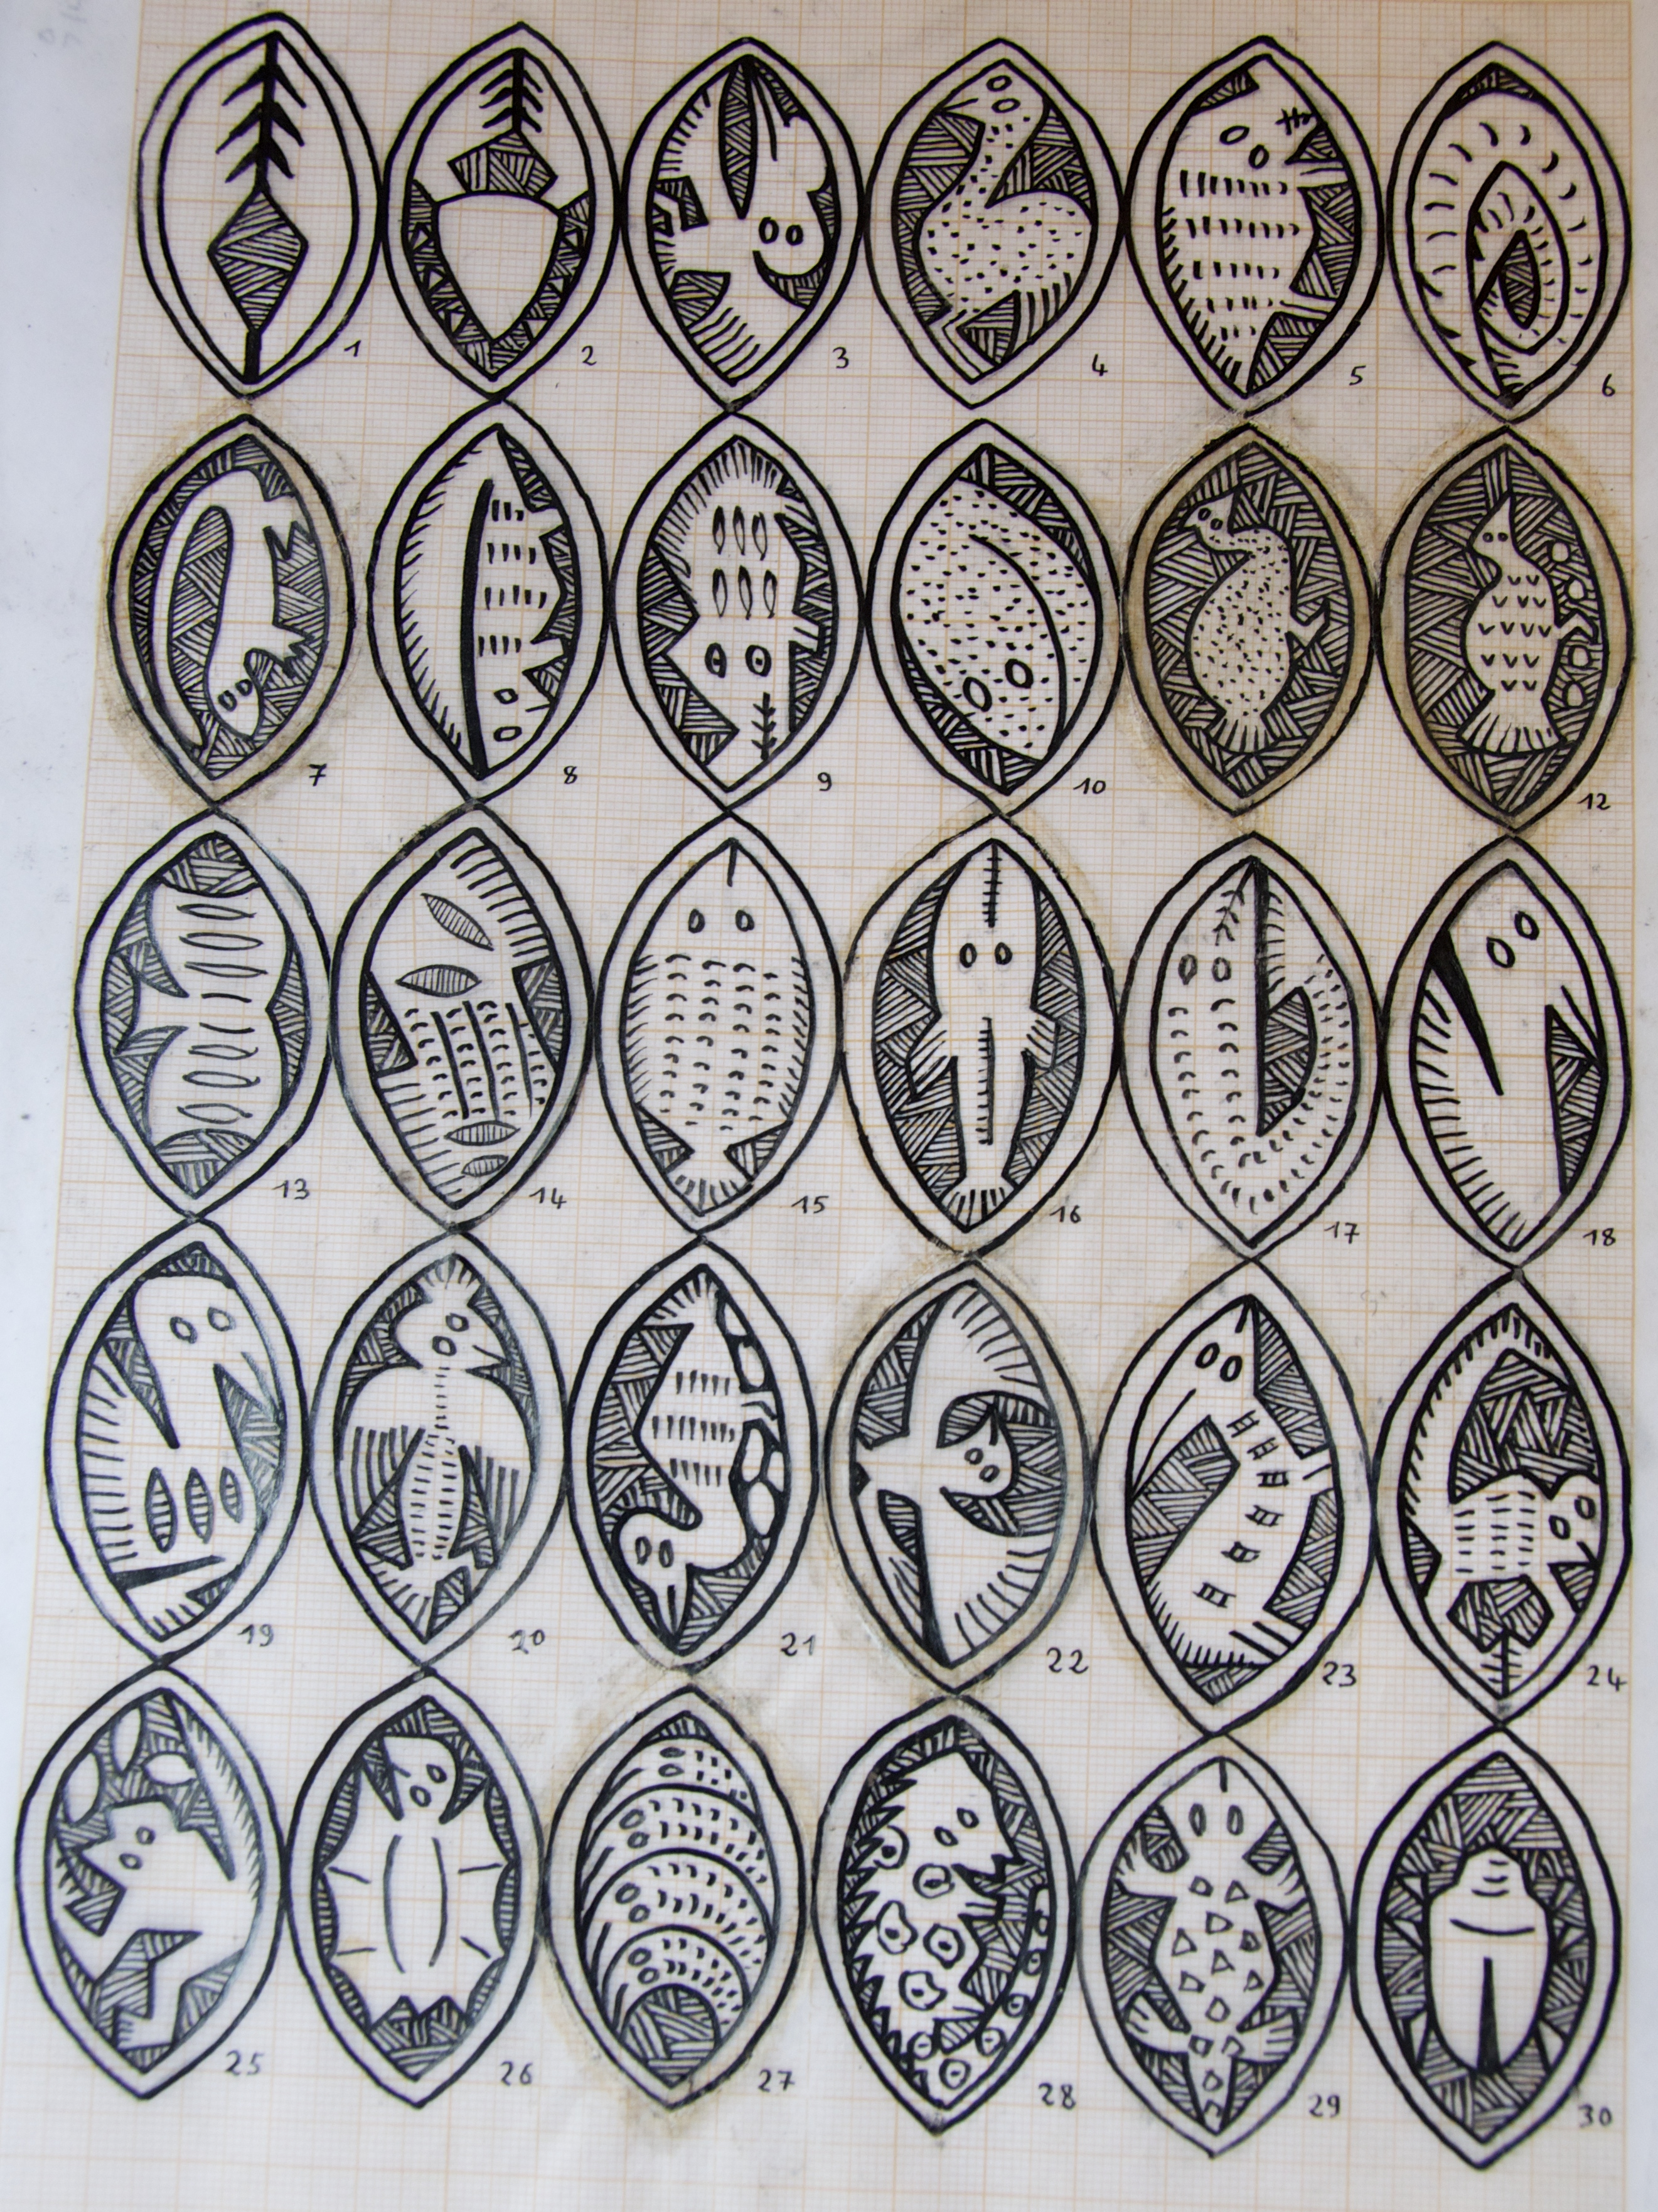 1 2 3 4 5 6
7 8 9 10 12
13 14 15 16 17 18
19 20 21 22 23 24
25 26 27 28 29 30